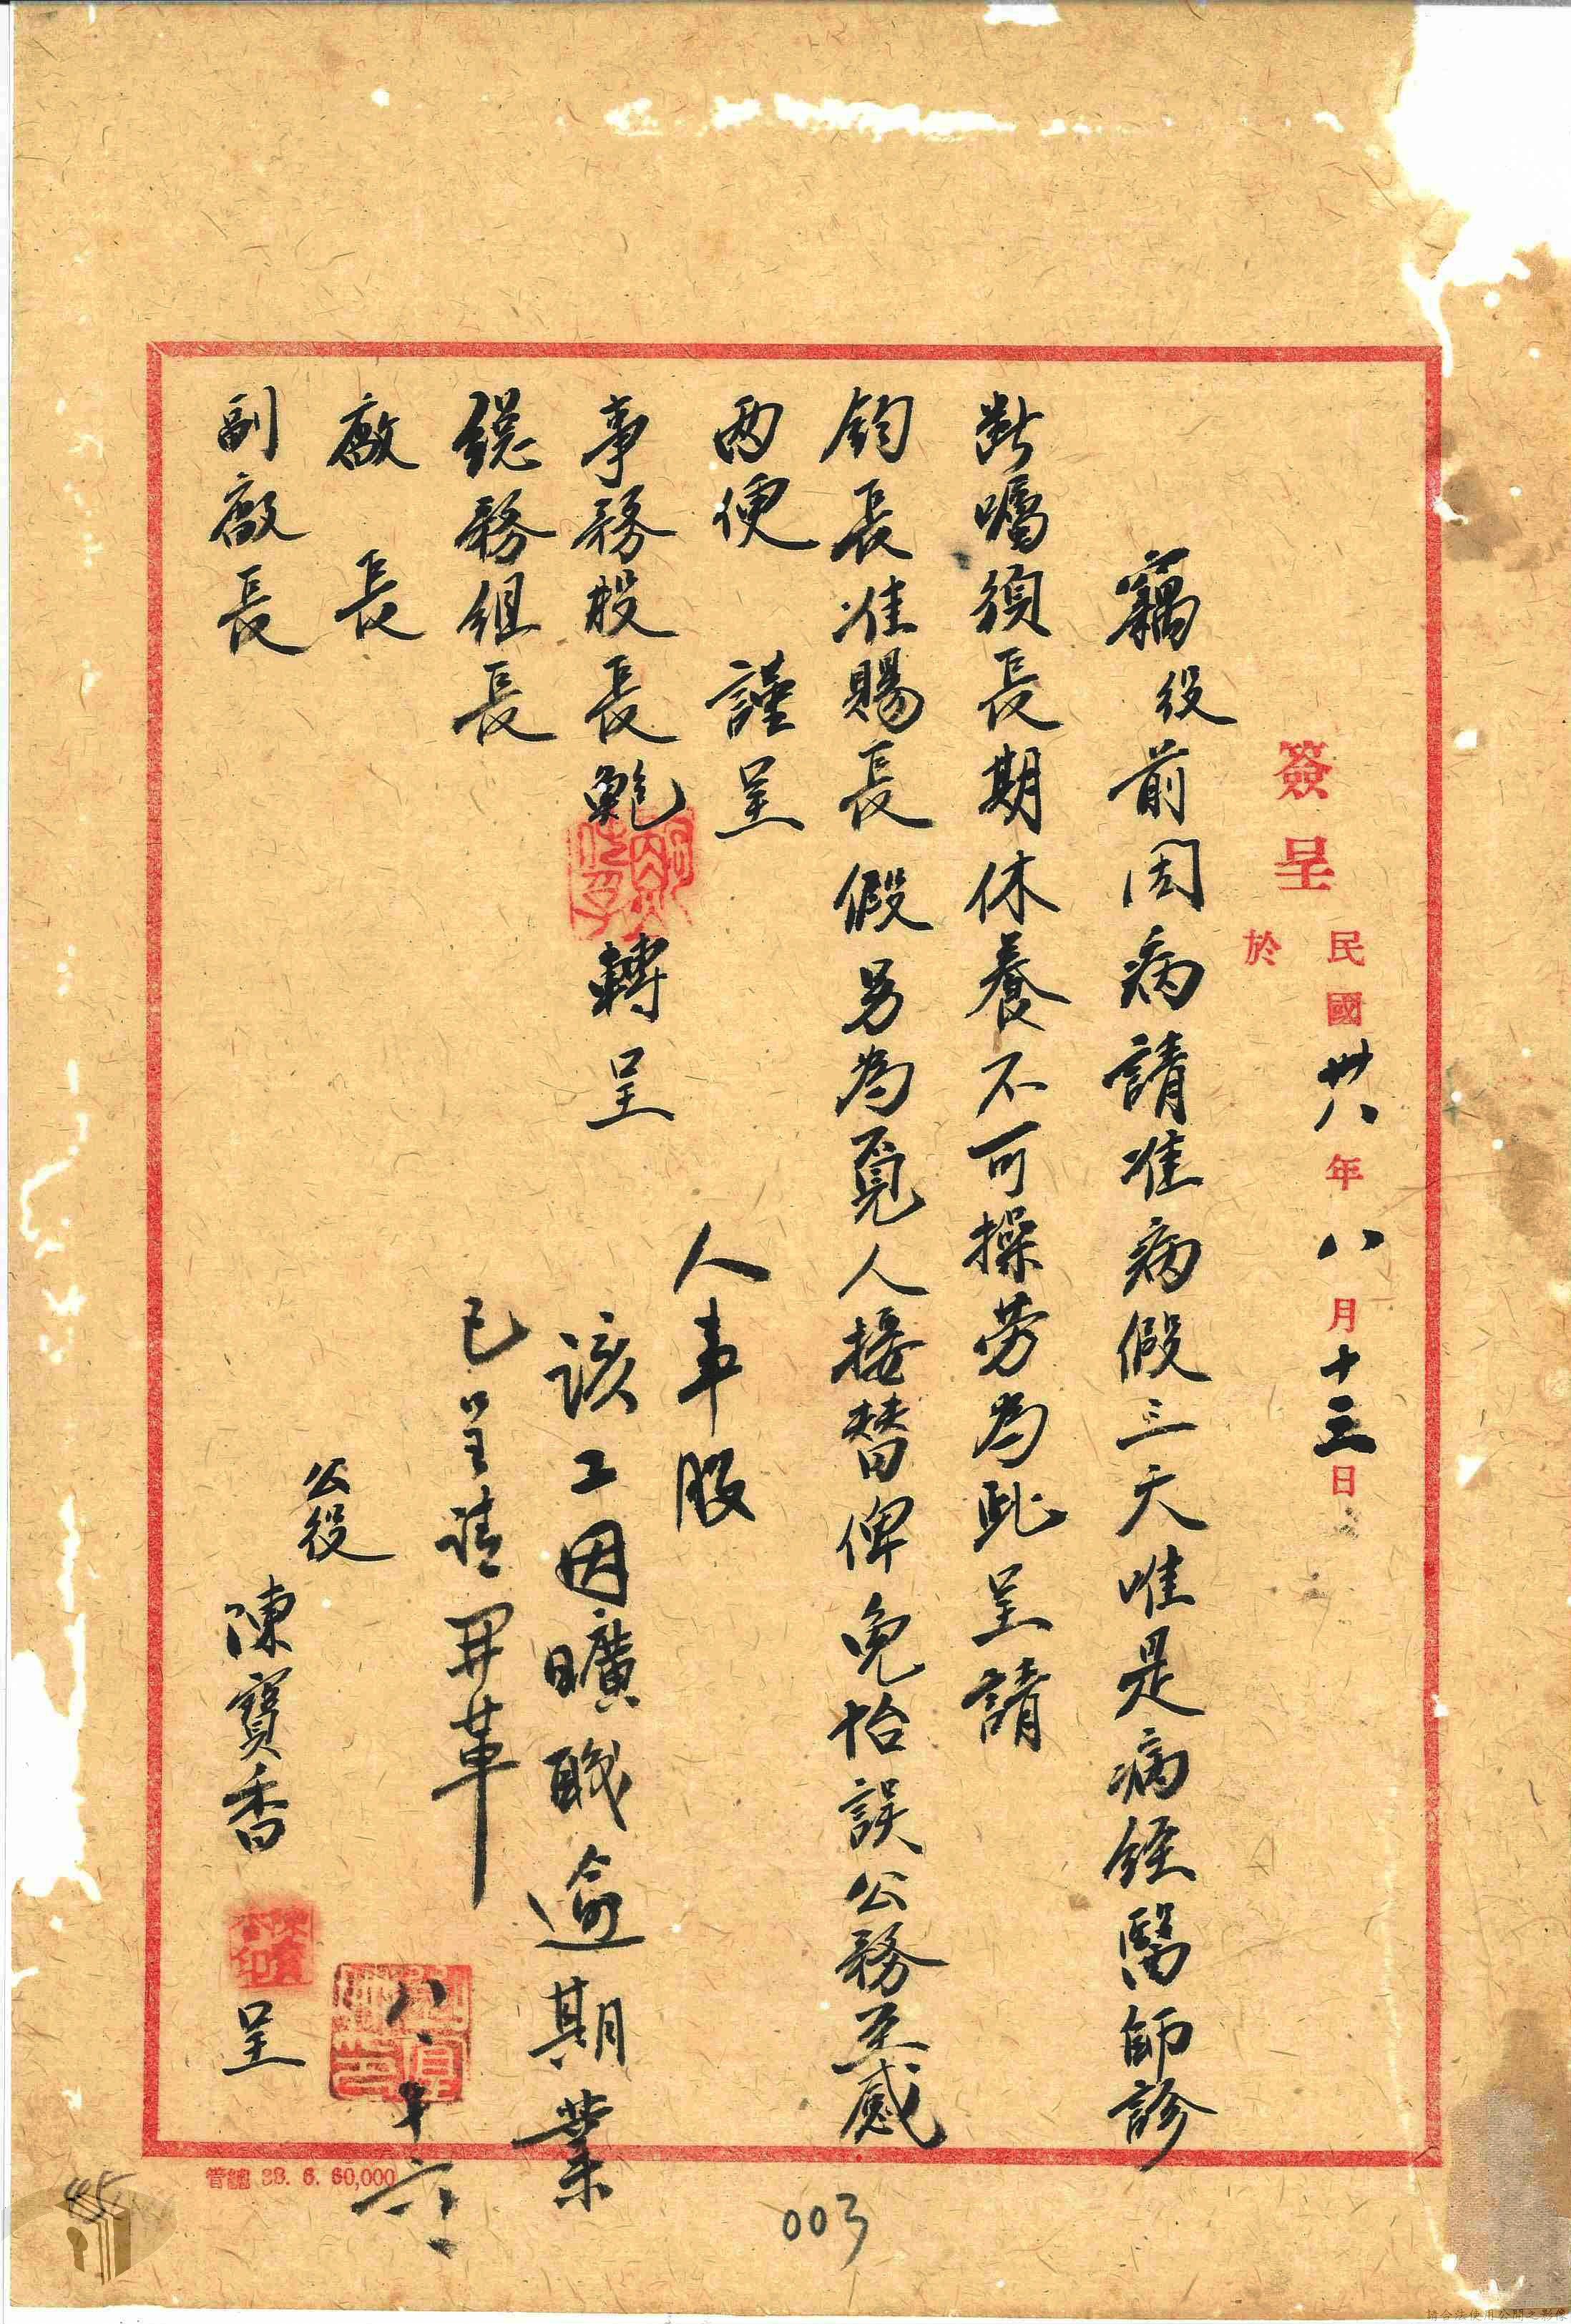 民國卅八年八月十三日
簽呈
於
竊役前因病請准病假三天唯是病經醫師診
斷囑須長期休養不可操劳為此呈請
鈞長准賜長假另為覓人接替俾免怡誤公務至感
两便 謹呈
事務股長鮑 轉呈
總務組長
廠 長
副廠長
公役
陳寶香 呈
人事股
該工因曠職逾期業
已呈請開革
八、十六、
管總 38. 6. 60,000
003